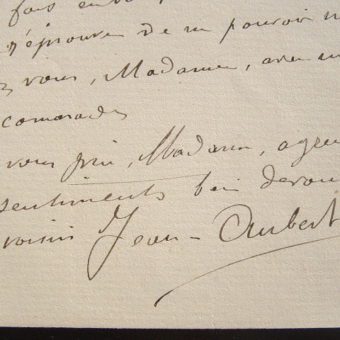 fois en
n'éprouve de ne pouvoir
vous, Madame, avec
camarades
vous prie, Madame, agréer
sentiments bien dévoué
voisin Jean-Aubert